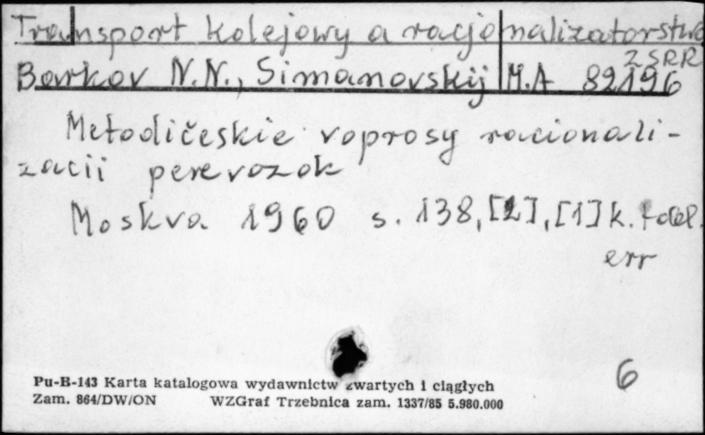 Transport kolejowy a racjonalizatorstwo
ZSRR
Barkov N.N., Simanovskij M.A 82196
Metodičeskie voprosy racionali-
zacii perevozok
Moskva 1960 s. 138, [2], [1] k.
err
6
Pu-B-143 Karta katalogowa wydawnictw zwartych i ciągłych
Zam. 864/DW/ON WZGraf Trzebnica zam. 1337/85 5.980.000